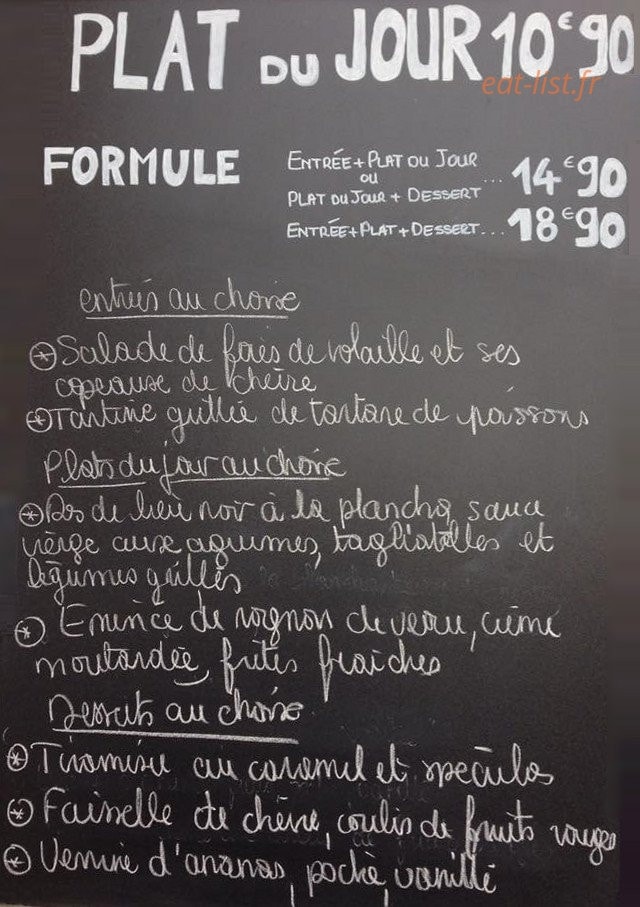 PLAT DU JOUR 10€90
eat-list.fr
FORMULE
ENTRÉE+PLAT OU JOUR
OU
PLAT DU JOUR + DESSERT ... 14€90
ENTRÉE+PLAT+DESSERT... 18€90
entrées au choix
Salade de foies de volaille et ses
copeaux de chèvre
Tartine grillée de tartare de poissons
Plats du jour au choix
Dos de lieu noir à la plancha, sauce
vierge aux agrumes, tagliatelles et
légumes grillés
Emincé de rognon de veau, crème
moutardée, frites fraiches
Desserts au choix
Tiramisu au caramel et speculos
Faisselle de chèvre, coulis de fruits rouges
Verrine d'ananas, poché, vanillé